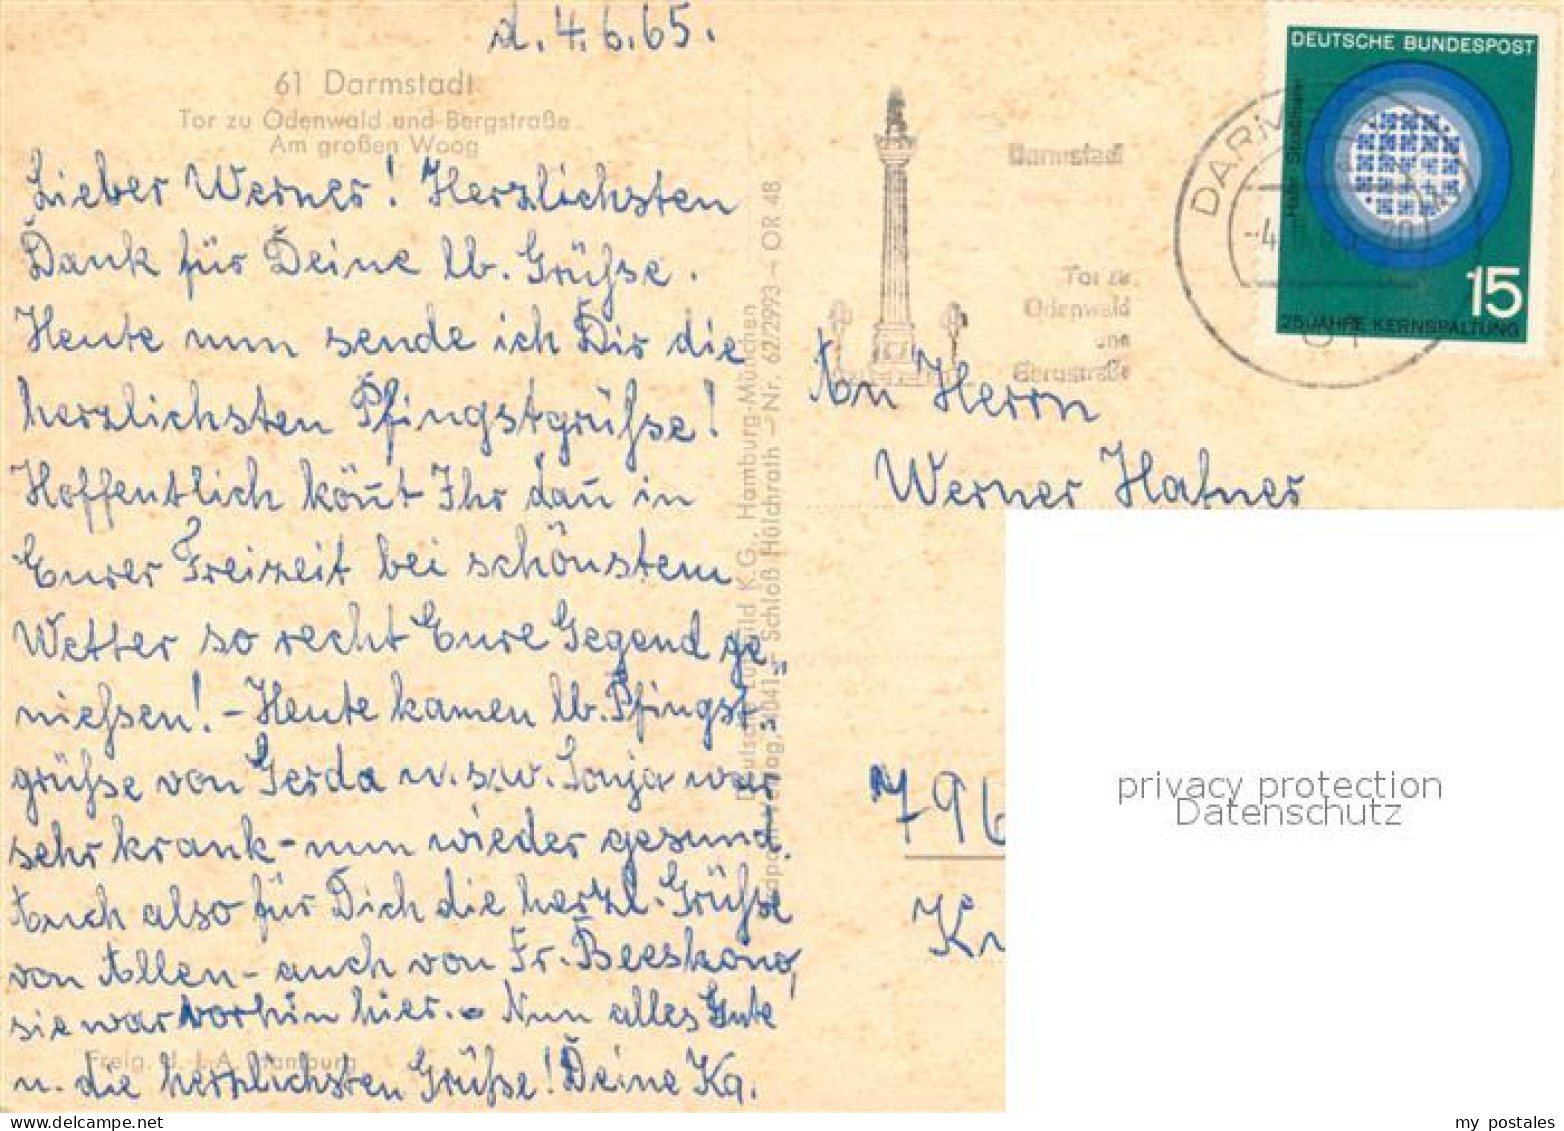 d. 4.6.65.
61 Darmstadt
Tor zu Odenwald und Bergstraße
Am großen Woog
Lieber Werner! Herzlichsten
Dank für Deine lb. Grüße.
Heute nun sende ich Dir die
herzlichsten Pfingstgrüße!
Hoffentlich kön̄t Ihr dan̄ in
Eurer Freizeit bei schönstem
Wetter so recht Eure Gegend ge„
nießen! - Heute kamen lb. Pfingst„
grüße von Gerda u. s.w. Sonja war
sehr krank - nun wieder gesund.
Auch also für Dich die herzl. Grüße
von Allen - auch von Fr.
sie war vorhin hier. - Nun alles Gute
u. die herzlichsten Grüße! Deine Kq.
Freig. d. L.A. Hamburg
Hamburg-München
Schloß Holdhrath - Nr. 62/2993 - OR 48
Darmstadt
Tor zu
Odenwald
und
Bergstraße
DEUTSCHE BUNDESPOST
15
25 JAHRE KERNSPALTUNG
DARM
61
An Herrn
Werner Hafner
796
K
privacy protection
Datenschutz
my postales
delcampe.net